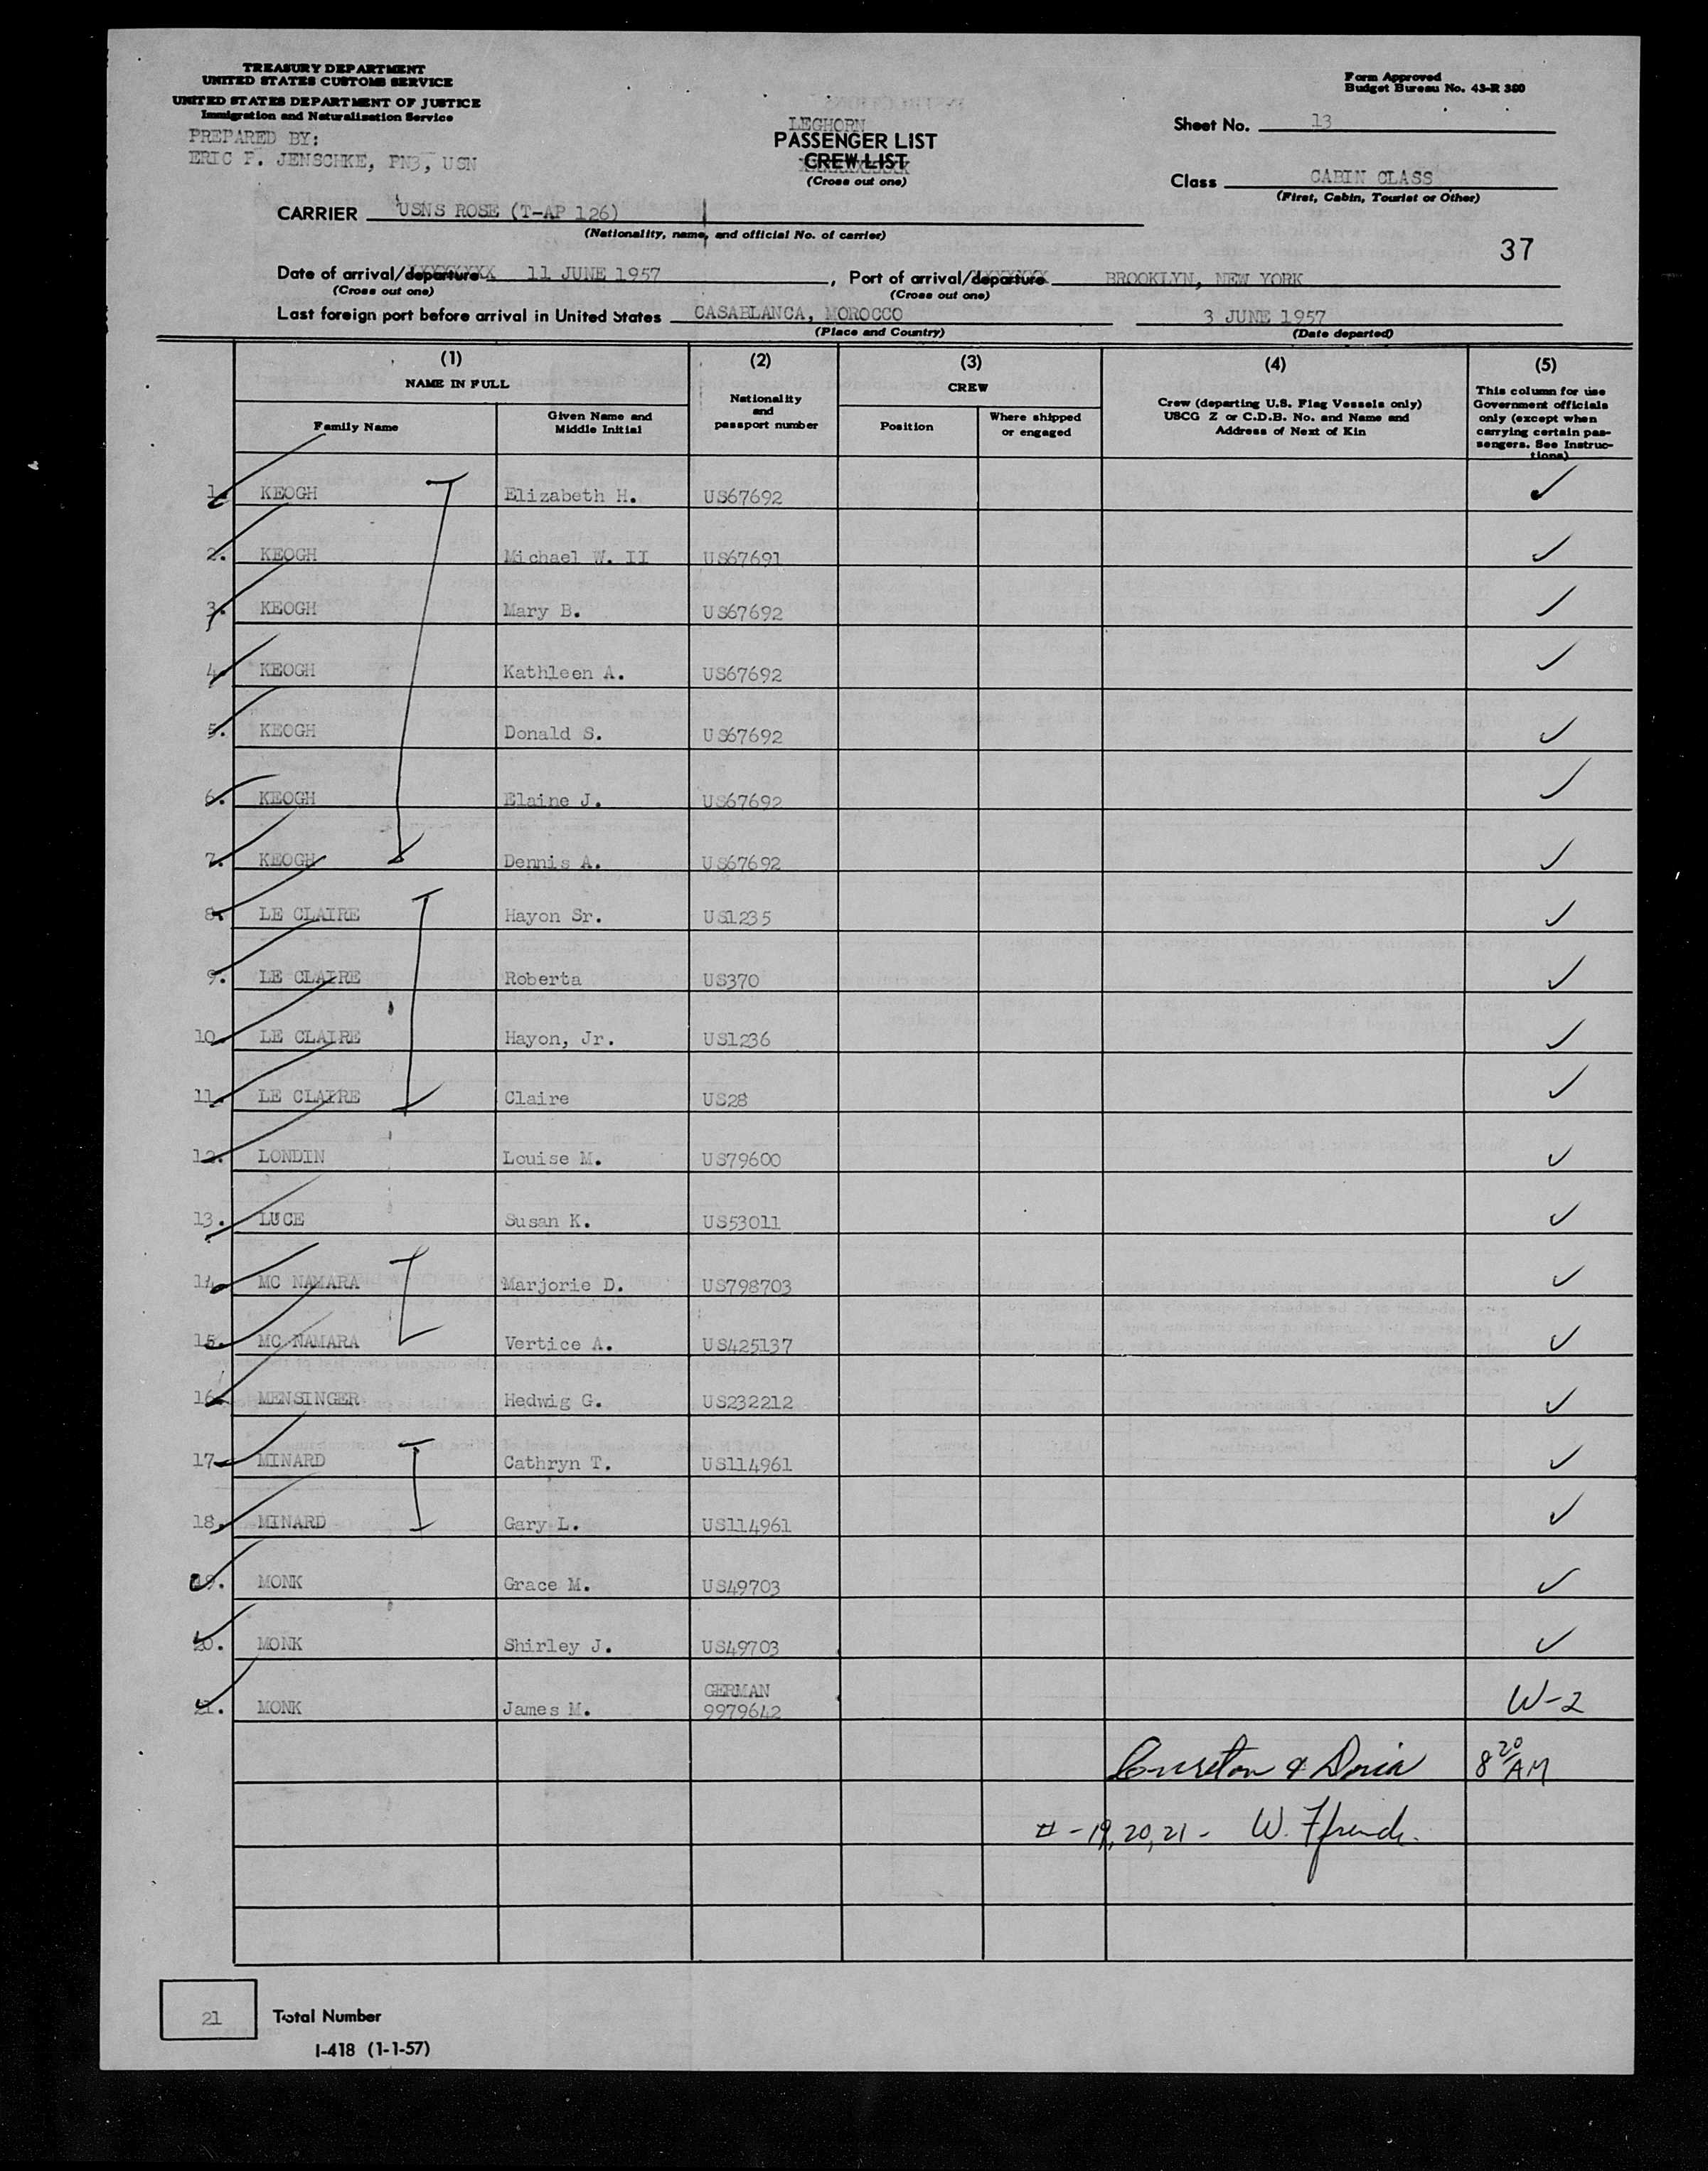 TREASURY DEPARTMENT
UNITED STATES CUSTOMS SERVICE
UNITED STATES DEPARTMENT OF JUSTICE
Immigration and Naturalization Service
PREPARED BY:
ERIC F. JENSCHKE, PN3, USN
LEGHORN
PASSENGER LIST
CREW LIST
(Cross out one)
Form Approved
Budget Bureau No. 43-R 380
Sheet No. 13
Class CABIN CLASS
(First, Cabin, Tourist or Other)
CARRIER USNS ROSE (T-AP 126)
(Nationality, name, and official No. of carrier)
37
Date of arrival/departure 11 JUNE 1957, Port of arrival/departure BROOKLYN, NEW YORK
(Cross out one) (Cross out one)
Last foreign port before arrival in United States CASABLANCA, MOROCCO 3 JUNE 1957
(Place and Country) (Date departed)
(1) (2) (3) (4) (5)
NAME IN FULL
Family Name
Given Name and
Middle Initial
Nationality
and
passport number
CREW
Position
Where shipped
or engaged
Crew (departing U.S. Flag Vessels only)
USCG Z or C.D.B. No. and Name and
Address of Next of Kin
This column for use
Government officials
only (except when
carrying certain pas-
sengers. See Instruc-
tions)
1. KEOGH Elizabeth H. US67692 ✓
2. KEOGH Michael W. II US67691 ✓
3. KEOGH Mary B. US67692 ✓
4. KEOGH Kathleen A. US67692 ✓
5. KEOGH Donald S. US67692 ✓
6. KEOGH Elaine J. US67692 ✓
7. KEOGH Dennis A. US67692 ✓
8. LE CLAIRE Hayon Sr. US1235 ✓
9. LE CLAIRE Roberta US370 ✓
10. LE CLAIRE Hayon, Jr. US1236 ✓
11. LE CLAIRE Claire US28 ✓
12. LONDIN Louise M. US79600 ✓
13. LUCE Susan K. US53011 ✓
14. MC NAMARA Marjorie D. US798703 ✓
15. MC NAMARA Vertice A. US425137 ✓
16. MENSINGER Hedwig G. US232212 ✓
17. MINARD Cathryn T. US114961 ✓
18. MINARD Gary L. US114961 ✓
19. MONK Grace M. US49703 ✓
20. MONK Shirley J. US49703 ✓
21. MONK James M. GERMAN 9979642 W-2
& 8 20/AM
# - 19, 20, 21 - W.
21 Total Number
I-418 (1-1-57)